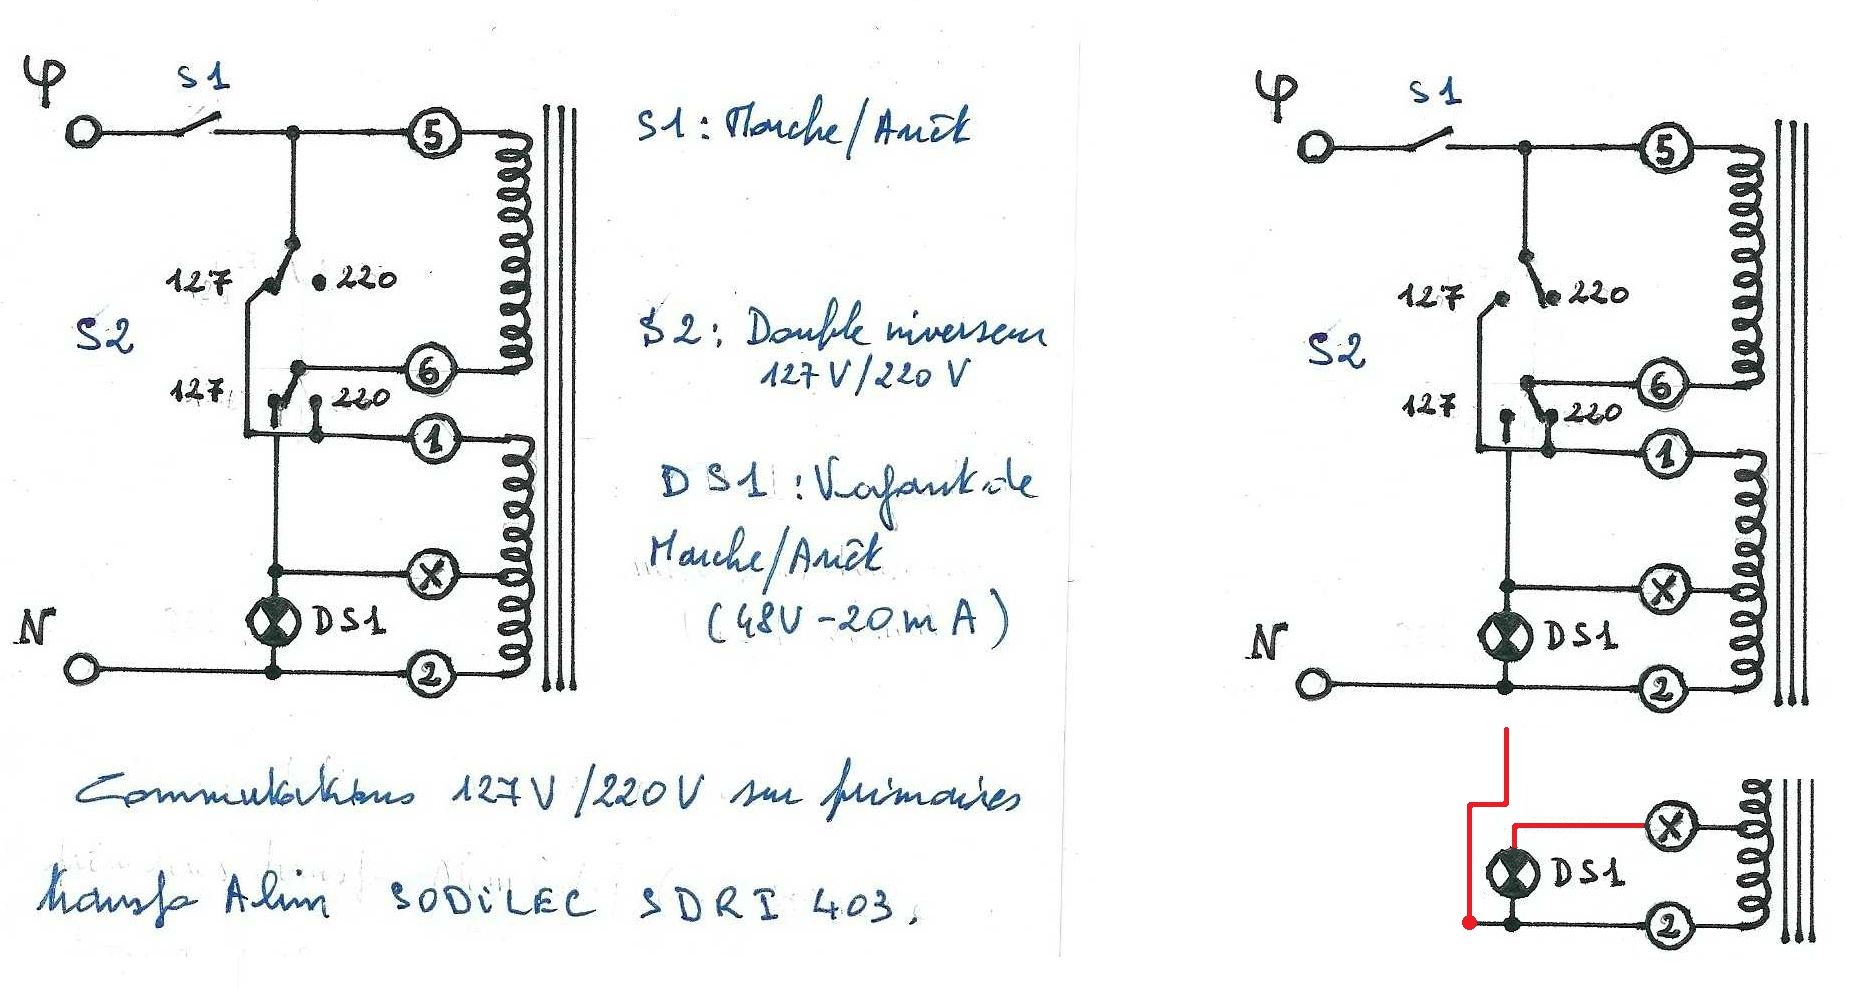 φ
S1
5
127
220
S2
6
127
220
1
X
DS1
N
2
S1 : Marche/Arrêt
S2 : Double inverseur
127 V/220 V
DS1 : Voyant de
Marche/Arrêt
(48V - 20 mA)
Commutations 127V/220V sur primaires
transfo Alim SODILEC SDRI 403.
φ
S1
5
127
220
S2
6
127
220
1
X
DS1
N
2
X
DS1
2